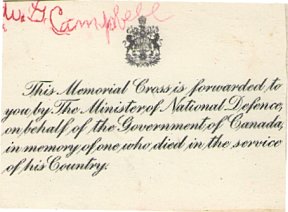 W. G. Campbell
This Memorial Cross is forwarded to
you by The Minister of National Defence,
on behalf of the Government of Canada,
in memory of one who died in the service
of his Country.